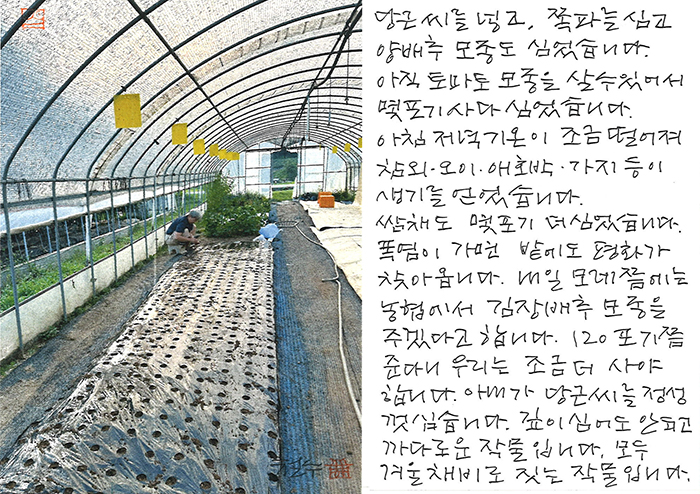 당근씨를 넣고, 쪽파를 심고
양배추 모종도 심었습니다.
아직 토마토 모종을 살수있어서
몇포기사다 심었습니다.
아침 저녁기온이 조금 떨어져
참외·오이·애호박·가지 등이
생기를 얻었습니다.
쌈채도 몇포기 더심었습니다.
폭염이 가면 밭에도 평화가
찾아옵니다. 내일 모레쯤에는
농협에서 김장배추 모종을
주겠다고 합니다. 120포기쯤
준다니 우리는 조금 더 사야
합니다. 아내가 당근씨를 정성
껏심습니다. 깊이심어도 안되고
까다로운 작물입니다. 모두
겨울채비로 짓는 작물입니다.